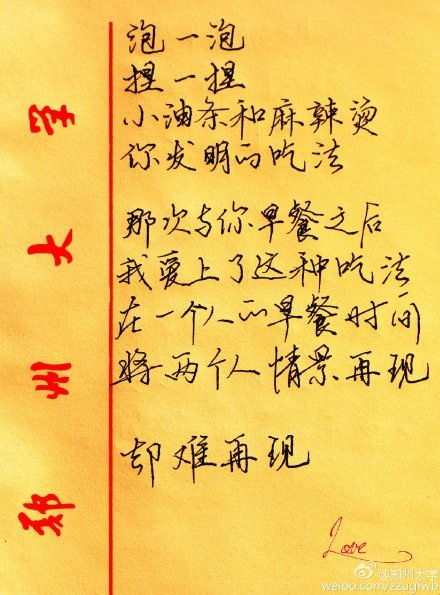 泡一泡
捏一捏
小油条和麻辣烫
你发明的吃法
那次与你早餐之后
我爱上了这种吃法
在一个人的早餐时间
将两个人情景再现
却难再现
Love
郑州大学
@郑州大学
weibo.com/zzugfwb